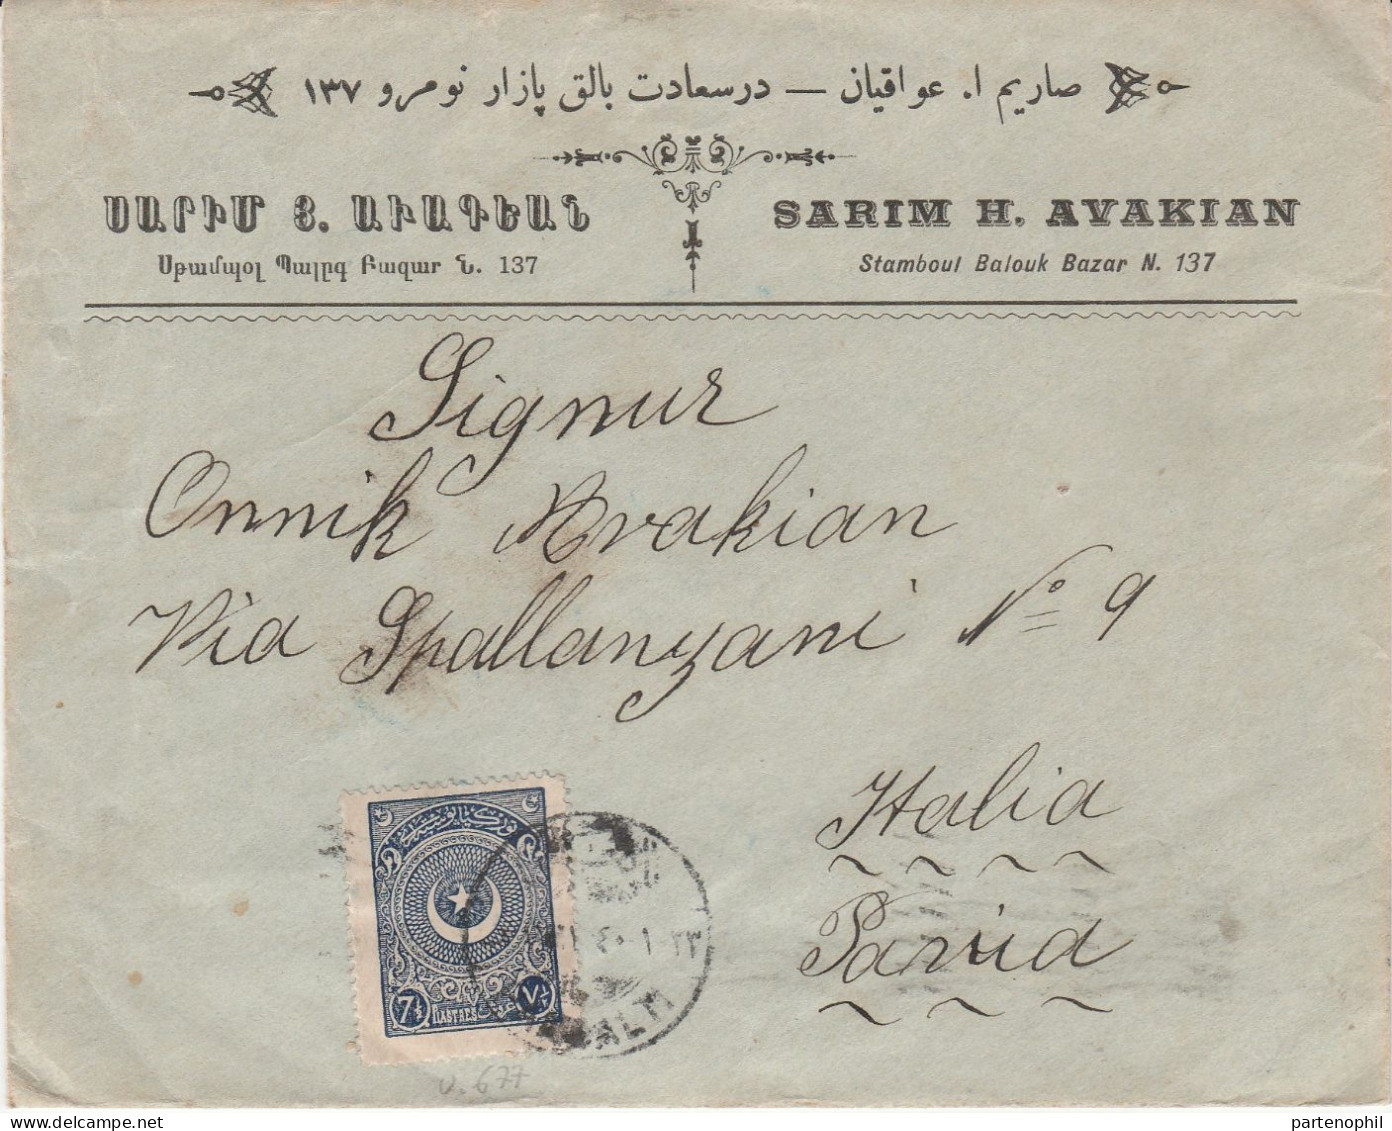 صاریم ا. عواقیان — درسعادت بالق پازار نومرو ١٣٧
ՍԱՐԻՄ Յ. ԱՒԱԳԵԱՆ
Սթամպօլ Պալըգ Բազար Ն. 137
SARIM H. AVAKIAN
Stamboul Balouk Bazar N. 137
Signur
Onnik Avakian
Via Spallanzani No 9
Italia
Pavia
7½
PIASTRES
غروش
٧½
partenophil